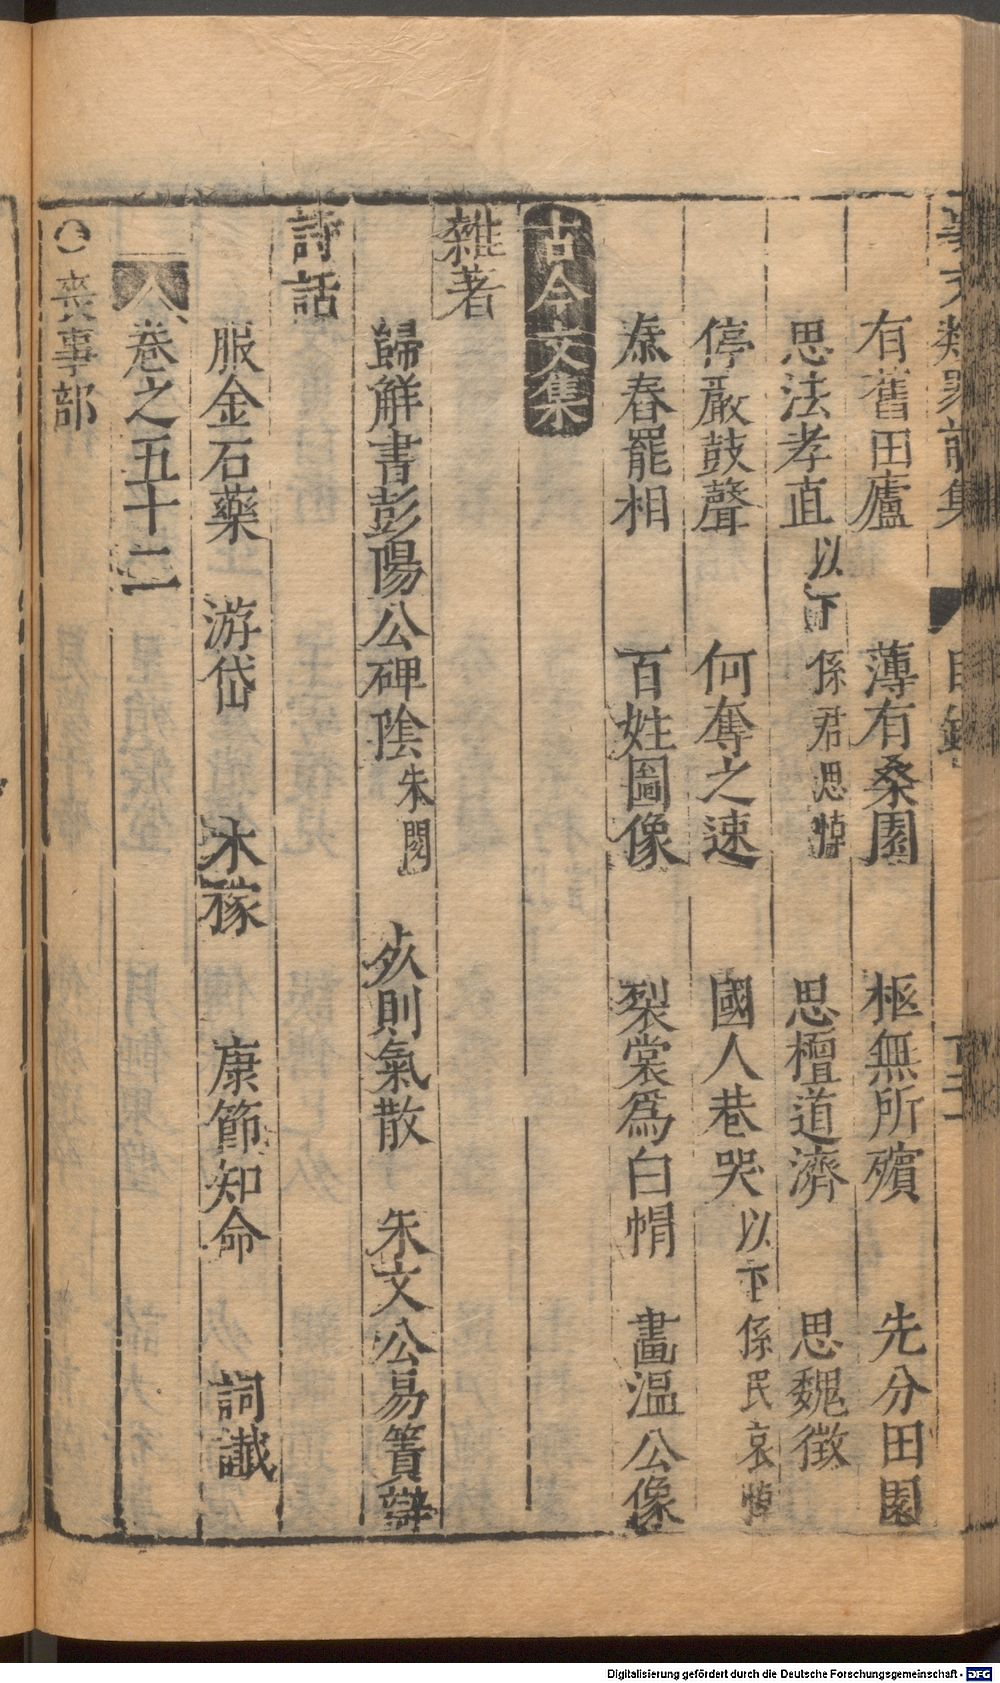 事文類聚前集 目錄
有舊田廬 薄有桑園 柩無所殯 先分田園
思法孝直以下係君思悼 思檀道濟 思魏徵
停嚴鼓聲 何奪之速 國人巷哭以下係民哀悼
忝春罷相 百姓圖像 裂裳爲白帽 畫溫公像
古今文集
雜著
歸觧書彭陽公碑陰朱閱 死則氣散 朱文公易簀辯
詩話
服金石藥 游岱 木稼 康節知命 詞讖
卷之五十二
○喪事部
Digitalisierung gefördert durch die Deutsche Forschungsgemeinschaft - DFG